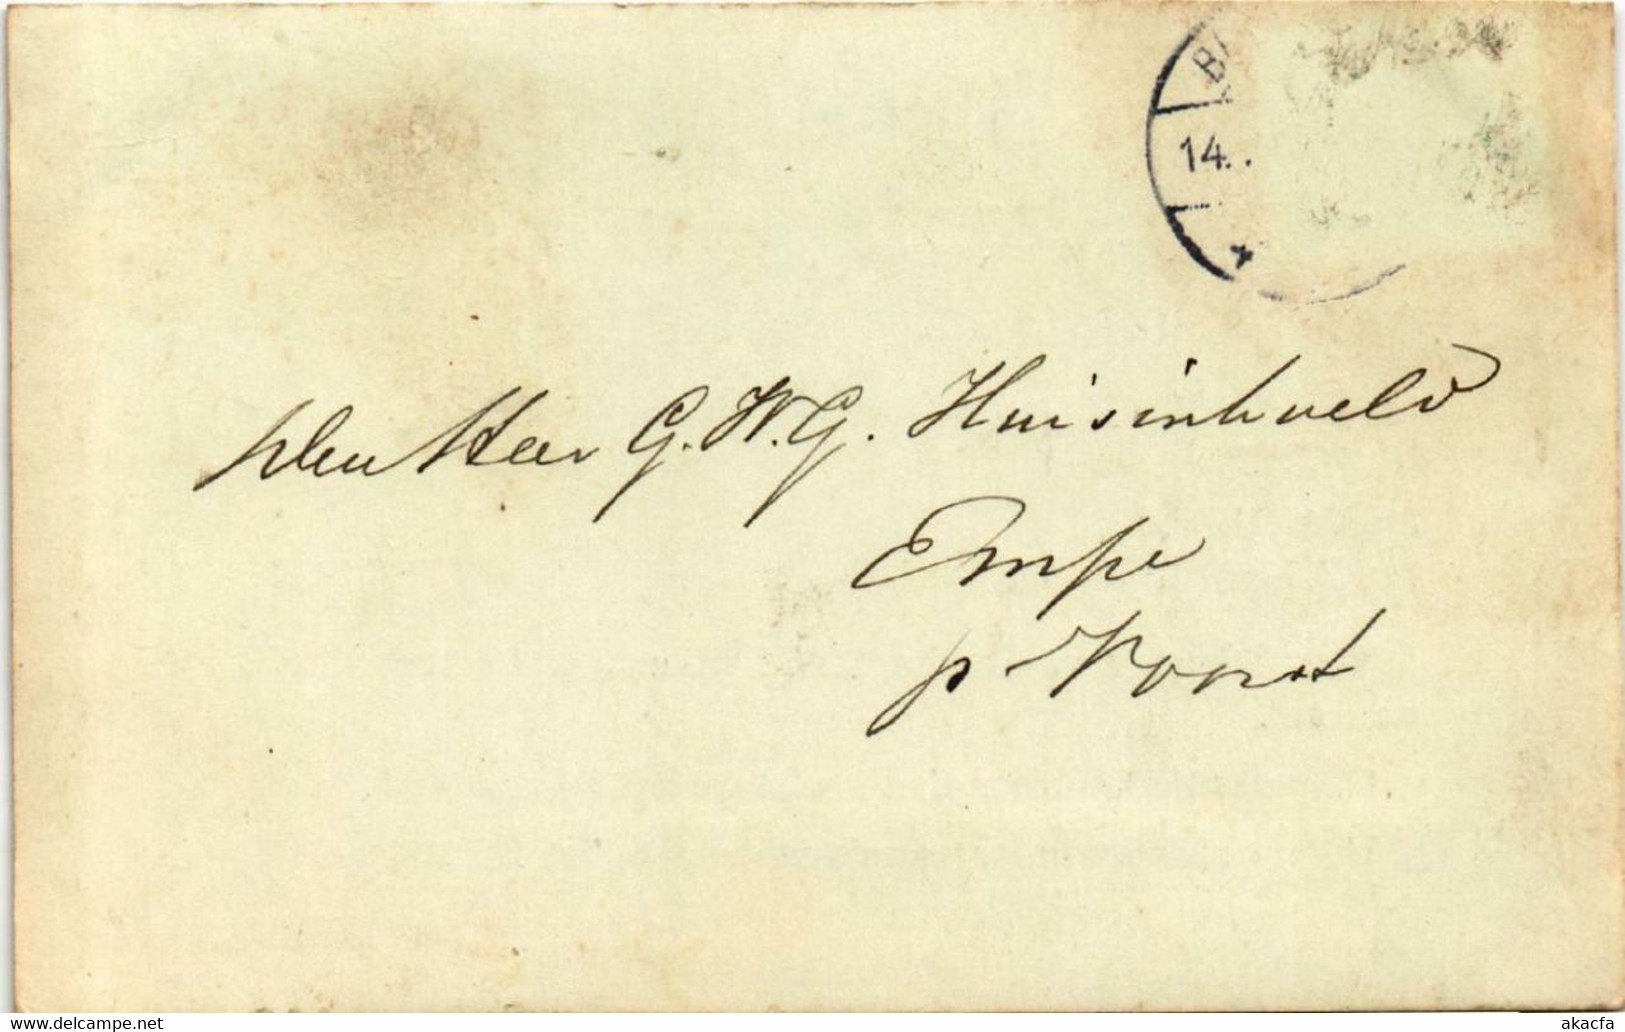 BA
14.
Den Heer G. W. G. Huisinkveld
Empe
p Voorst
www.delcampe.net
akacfa